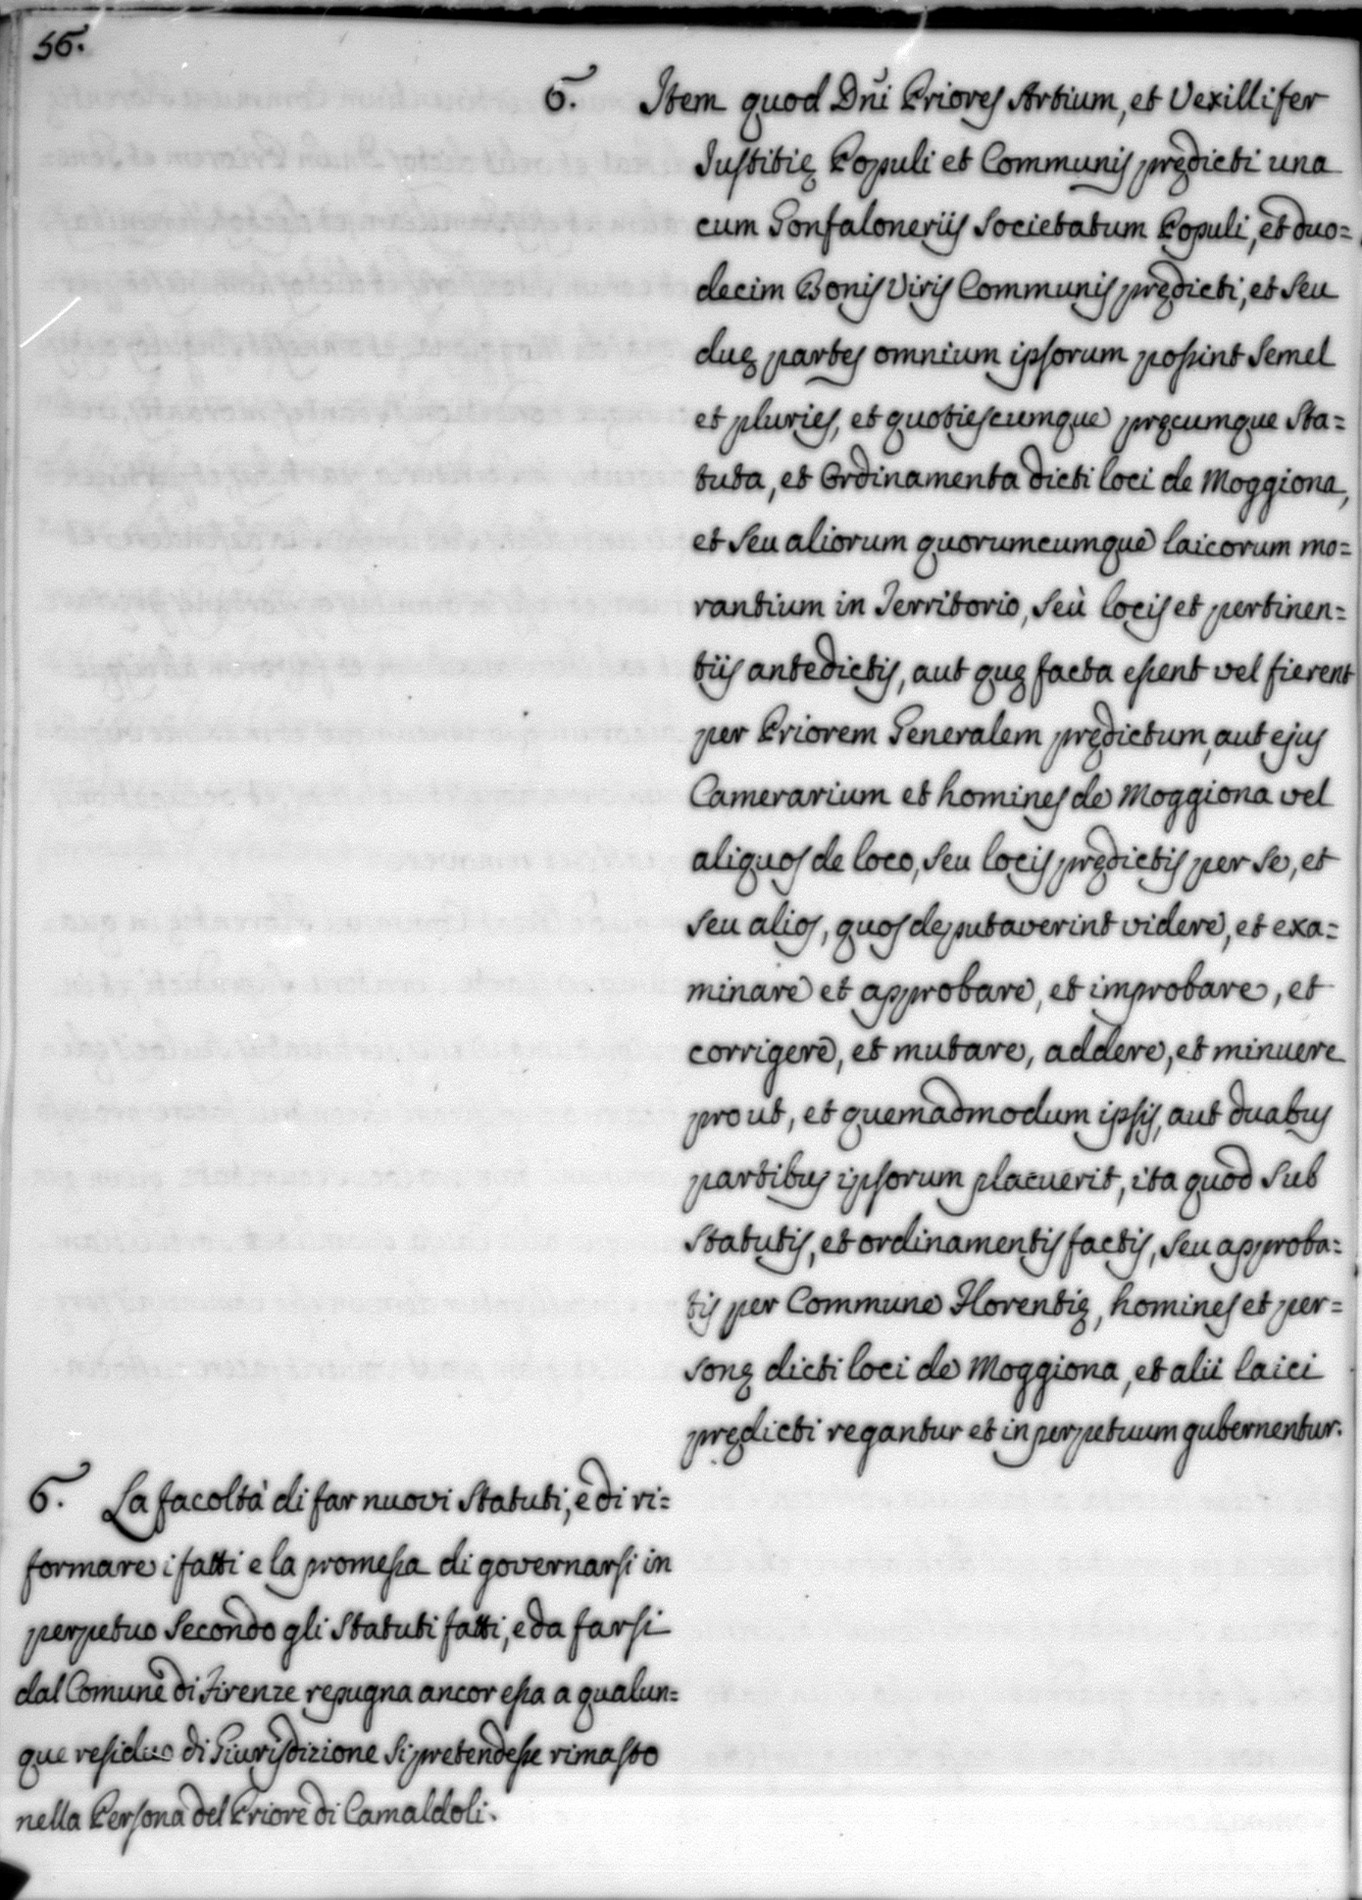 56.
6. Item quod Dñi Priores Artium, et Vexillifer
Iustitię Populi et Communis prędicti una
cum Gonfaloneriis Societatum Populi, et duo=
decim Bonis Viris Communis prędicti, et seu
duę partes omnium ipsorum possint semel
et pluries, et quotiescumque pręcumque Sta=
tuta, et Ordinamenta dicti loci de Moggiona,
et seu aliorum quorumcumque laicorum mo=
rantium in Territorio, seù locis et pertinen=
tiis antedictis, aut quę facta essent vel fierent
per Priorem Generalem prędictum, aut ejus
Camerarium et homines de Moggiona vel
aliquos de loco, seu locis prędictis per se, et
seu alios, quos deputaverint videre, et exa=
minare et approbare, et improbare, et
corrigere, et mutare, addere, et minuere
prout, et quemadmodum ipsis, aut duabus
partibus ipsorum placuerit, ita quod sub
Statutis, et ordinamentis factis, seu approba=
tis per Commune Florentię, homines et per=
sonę dicti loci de Moggiona, et alii laici
prędicti regantur et in perpetuum gubernentur.
6. La facoltà di far nuovi Statuti, e di ri=
formare i fatti e la promessa di governarsi in
perpetuo secondo gli Statuti fatti, e da farsi
dal Comune di Firenze repugna ancor essa a qualun=
que residuo di Giurisdizione si pretendesse rimasto
nella Persona del Priore di Camaldoli.